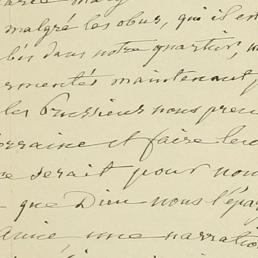 malgré les obus, qu'il est
bés dans notre quartier,
rmentés maintenant,
les Prussiens nous pren
orraine et faire leu
ce serait pour nou
que Dieu nous l'épar
une narratio